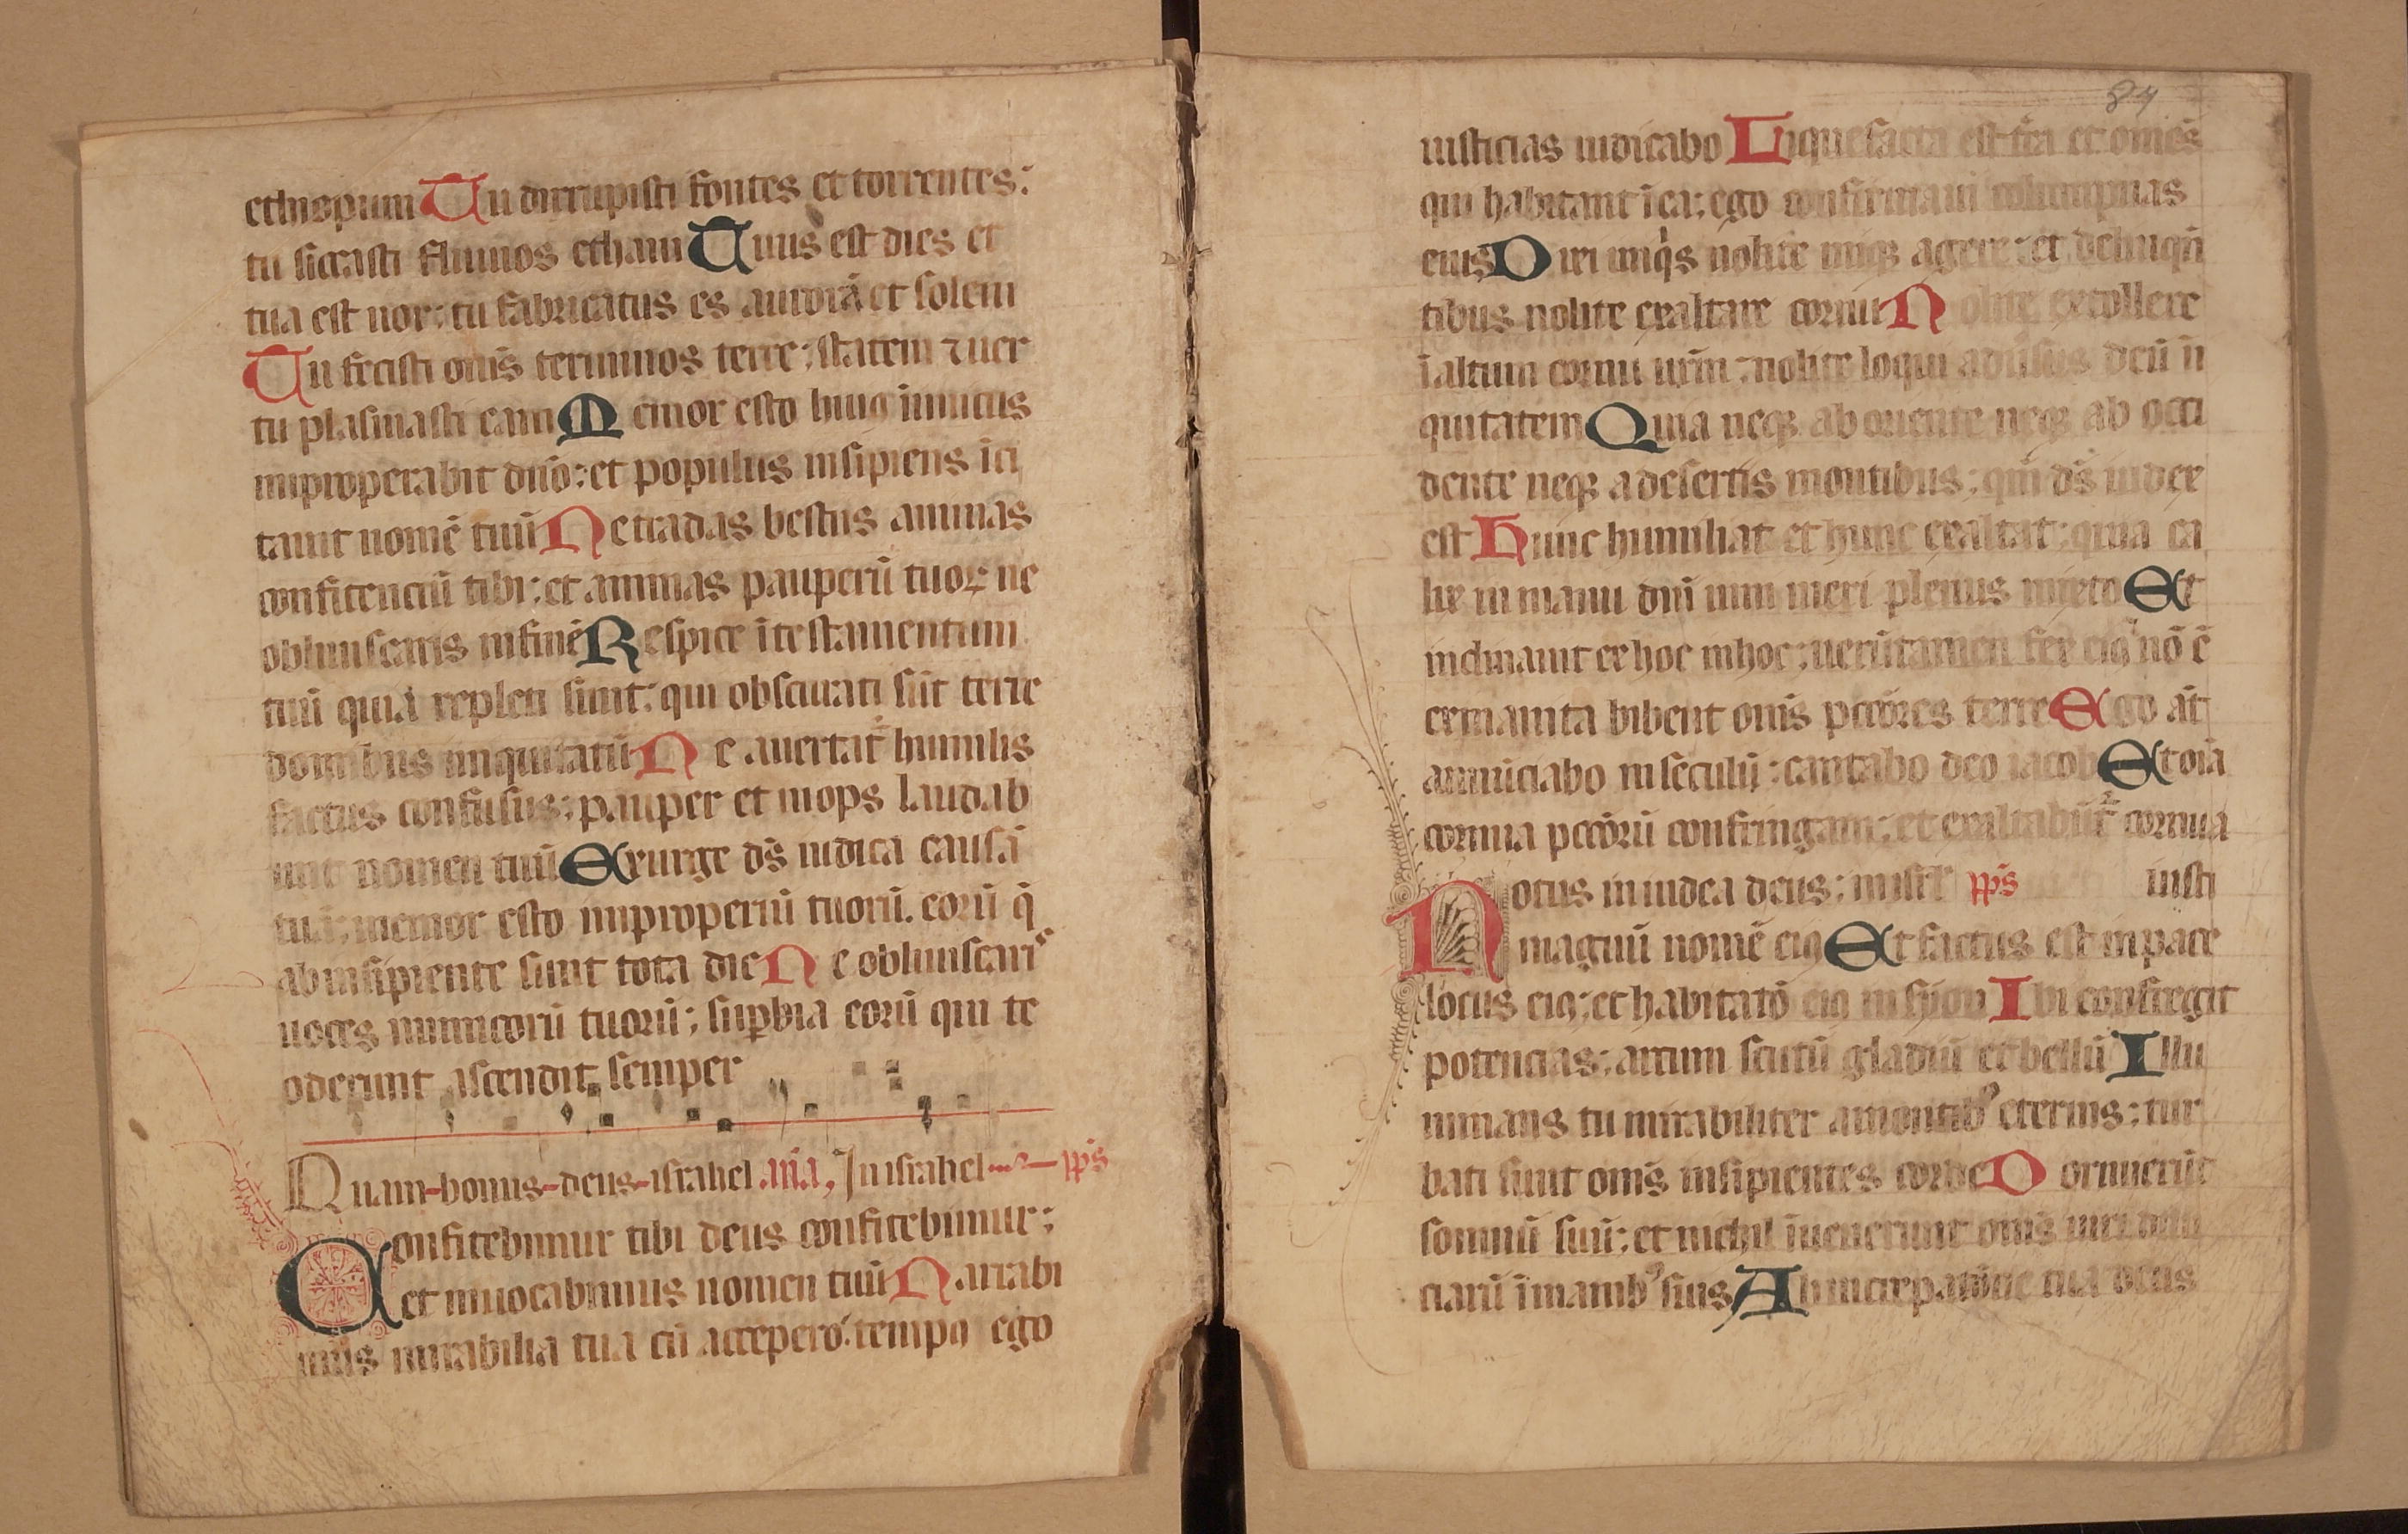 ethiopum Tu dirrupisti fontes et torrentes:
tu siccasti fluuios etham Tuus est dies et
tua est nox: tu fabricatus es aurorā et solem
Tu fecisti om̄s terminos terre: statem ⁊ uer
tu plasmasti eam Memor esto huiꝰ inimicus
improperabit dn̄o: et populus insipiens īci
tauit nomē tuū Ne tradas bestiis animas
confitenciū tibi: et animas pauperū tuoꝝ ne
obliuiscaris in finē Respice ī testamentum
tuū quia repleti sunt: qui obscurati sūt terre
domibus iniquitatū Ne auertat᷑ humilis
factus confusus: pauper et inops laudab
unt nomen tuū Exurge ds̄ iudica causā
tuā: memor esto improperiū tuorū. eorū q̄
ab insipiente sunt tota die Ne obliuiscaris
uoces inimicorū tuorū: suꝑbia eorū qui te
oderunt ascendit semper
Quam bonus deus israhel ān̄a, In israhel pp̄s
Confitebimur tibi deus confitebimur:
et inuocabimus nomen tuū Narrabi
mus mirabilia tua cū accepero tempꝰ ego
84
iusticias iudicabo Liquefacta est t̄ra et om̄es
qui habitant ī ea: ego confirmaui columpnas
eius Dixi iniq̇s nolite iniq̄ agere: et delinq̄n
tibus nolite exaltare cornu Nolite extollere
ī altum cornu ur̄m: nolite loqui adūsus deū ī
quitatem Quia neqꝫ ab oriente neqꝫ ab occi
dente neqꝫ a desertis montibus: qm̄ ds̄ iudex
est Hunc humiliat et hunc exaltat: quia ca
lix in manu dn̄i uini meri plenus mixto Et
inclinauit ex hoc in hoc: uerūtamen fex eiꝰ nō ē
exinanita bibent om̄s pcc̄ores terre Ego āt
annūciabo in seculū: cantabo deo iacob Et om̄ia
cornua pcc̄orū confringam: et exaltabūt᷑ cornua
iusti
Notus in iudea deus: in isrl̄ pp̄s
magnū nomē eiꝰ Et factus est in pace
locus eiꝰ: et habitatō eiꝰ in syon Ibi confregit
potencias: arcum scutū gladiū et bellū Illu
minans tu mirabiliter a montibꝰ eternis: tur
bati sunt om̄s insipientes corde Dormierūt
somnū suū: et nichil īuenerunt om̄s uiri diui
ciarū ī manibꝰ suis Ab increpatōne tua deus